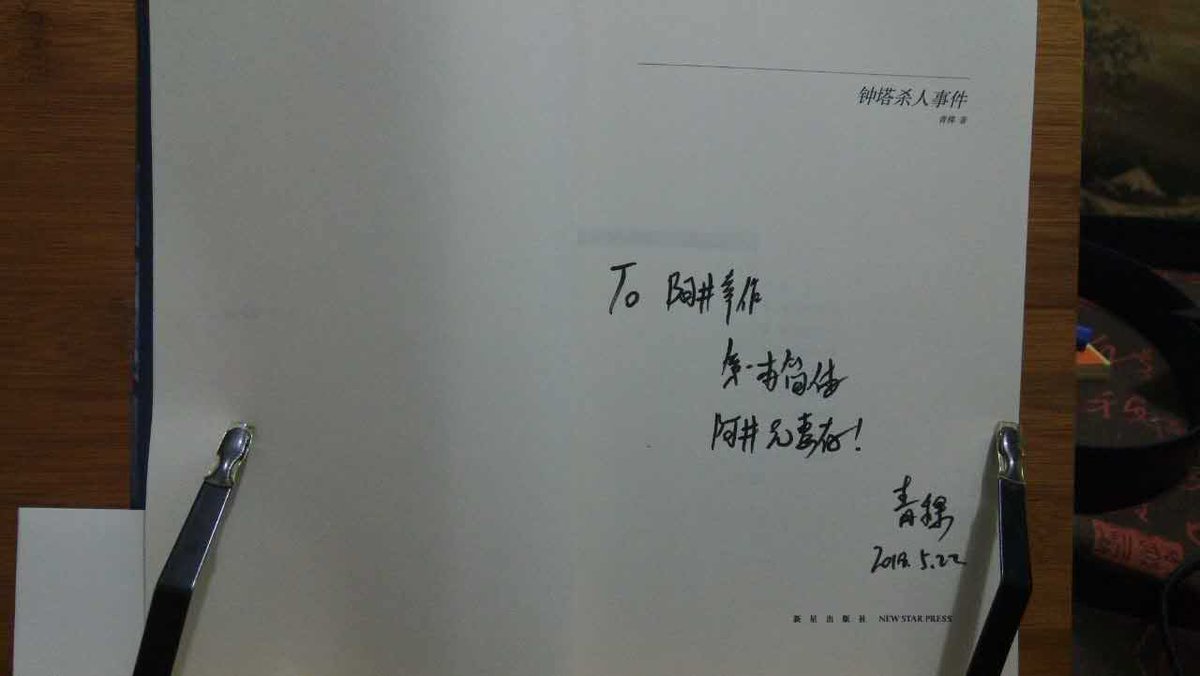 钟塔杀人事件
青稞 著
To 阿井幸作
第一本简体
阿井兄惠存!
青稞
2018.5.22
新星出版社 NEW STAR PRESS